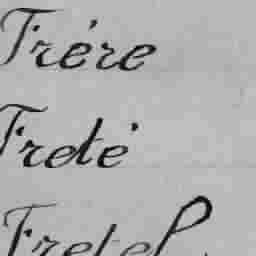 Frére
Freté
Fretel